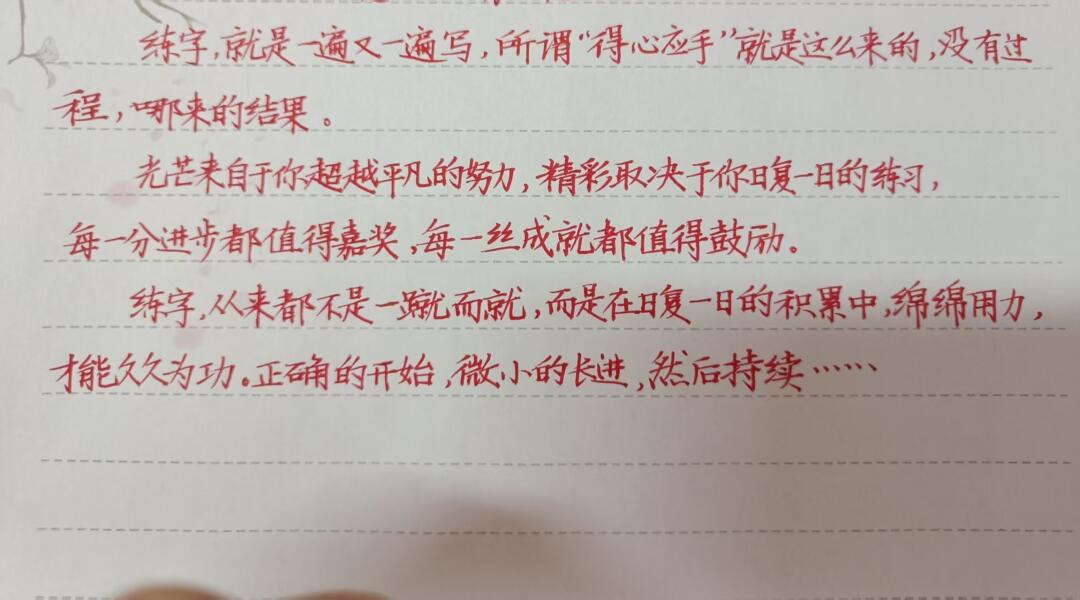 练字,就是一遍又一遍写,所谓“得心应手”就是这么来的,没有过
程,哪来的结果。
光芒来自于你超越平凡的努力,精彩取决于你日复一日的练习,
每一分进步都值得嘉奖,每一丝成就都值得鼓励。
练字,从来都不是一蹴而就,而是在日复一日的积累中,绵绵用力,
才能久久为功。正确的开始,微小的长进,然后持续……